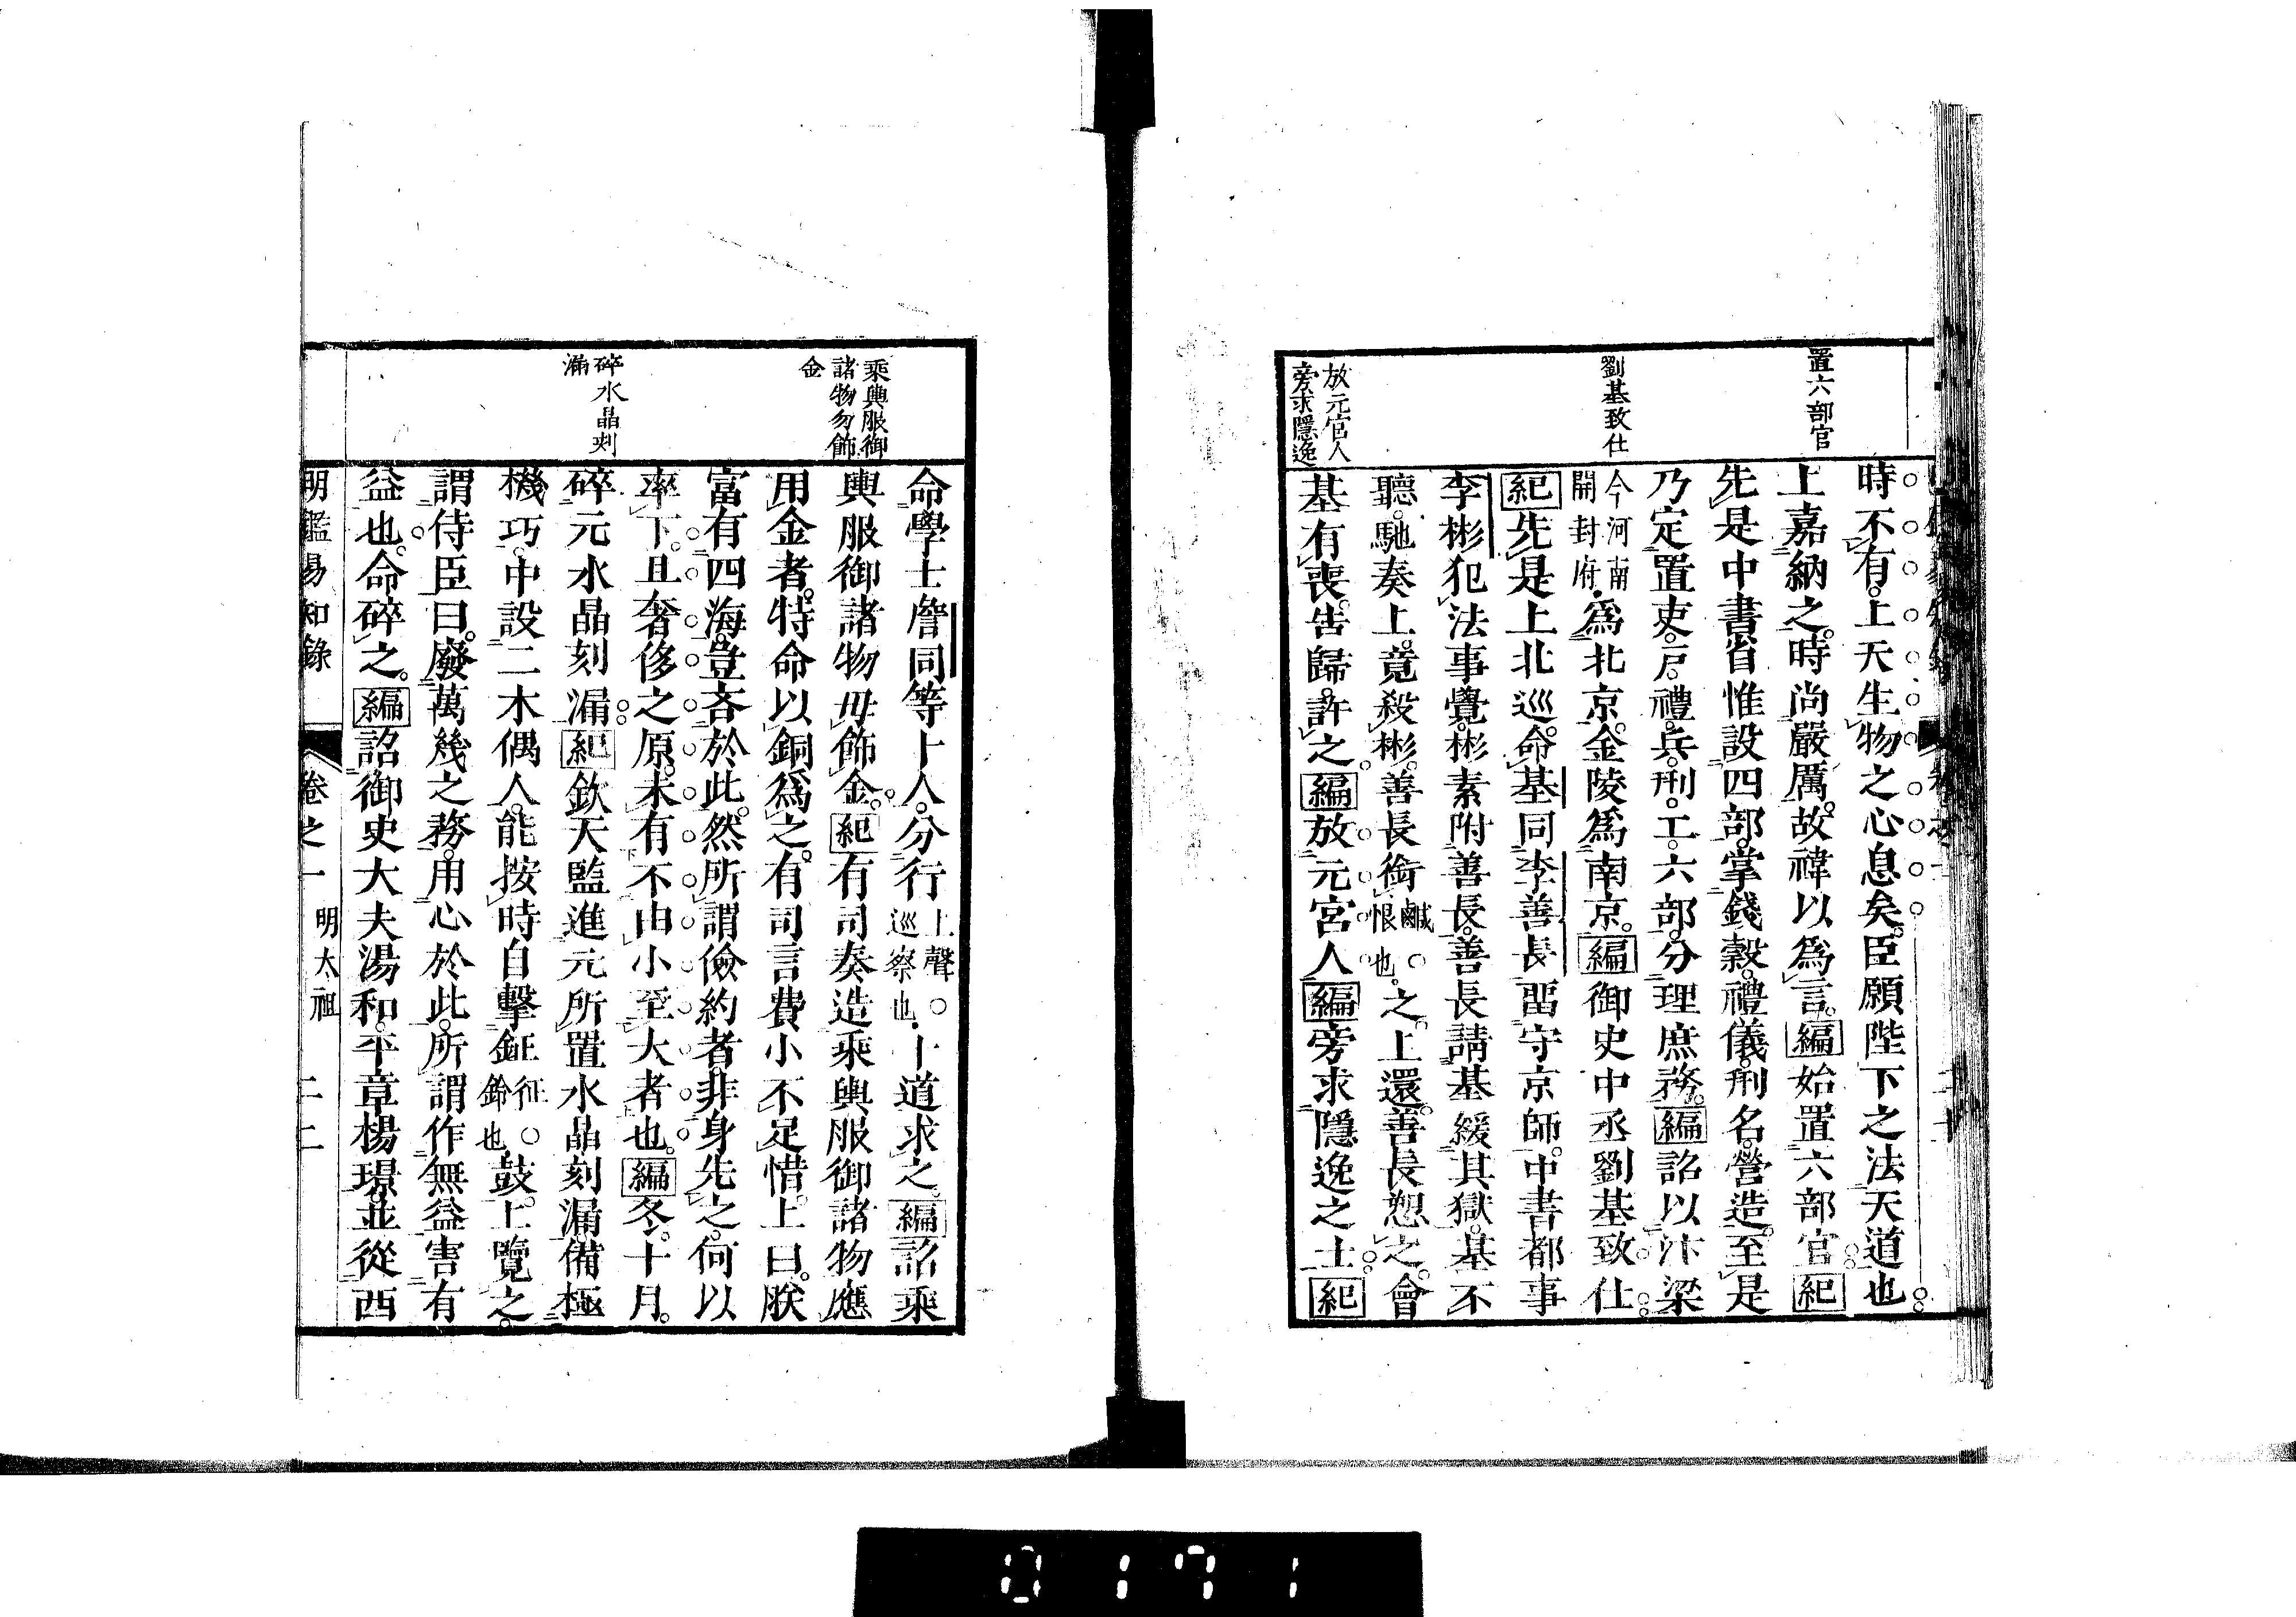 置六部官
劉基致仕
放元官人
旁求隱逸
時不有。上天生物之心息矣。臣願陛下之法天道也
上嘉納之。時尚嚴厲。故禕以為言。編始置六部官。紀
先是中書省惟設四部。掌錢穀。禮儀。刑名。營造。至是
乃定置吏。戶。禮。兵。刑。工。六部。分理庶務。編詔以汴梁
今河南
開封府
為北京。金陵為南京。編御史中丞劉基致仕。
紀先是上北巡。命基同李善長留守京師。中書都事
李彬犯法事覺。彬素附善長。善長請基緩其獄。基不
聽。馳奏上。竟殺彬。善長銜鹹○
恨也。之。上還。善長愬之。會
基有喪。告歸。許之。編放元宮人。編旁求隱逸之士。紀
乘輿服御
諸物勿飾
金
碎水晶刻
漏
命學士詹同等十人。分行上聲○
巡察也。十道求之。編詔乘
輿服御諸物毋飾金。紀有司奏造乘輿服御諸物應
用金者。特命以銅爲之。有司言費小不足惜。上曰。朕
富有四海。豈吝於此。然所謂儉約者。非身先之。何以
率下。且奢侈之原。未有不由小至大者也。編冬。十月。
碎元水晶刻漏。紀欽天監進元所置水晶刻漏。備極
機巧。中設二木偶人。能按時自擊鉦征○
鈴也。鼓。上覽之。
謂侍臣曰。廢萬幾之務。用心於此。所謂作無益害有
益也。命碎之。編詔御史大夫湯和。平章楊璟。並從西
明鑑易知錄
卷之一
明太祖
二二
0171